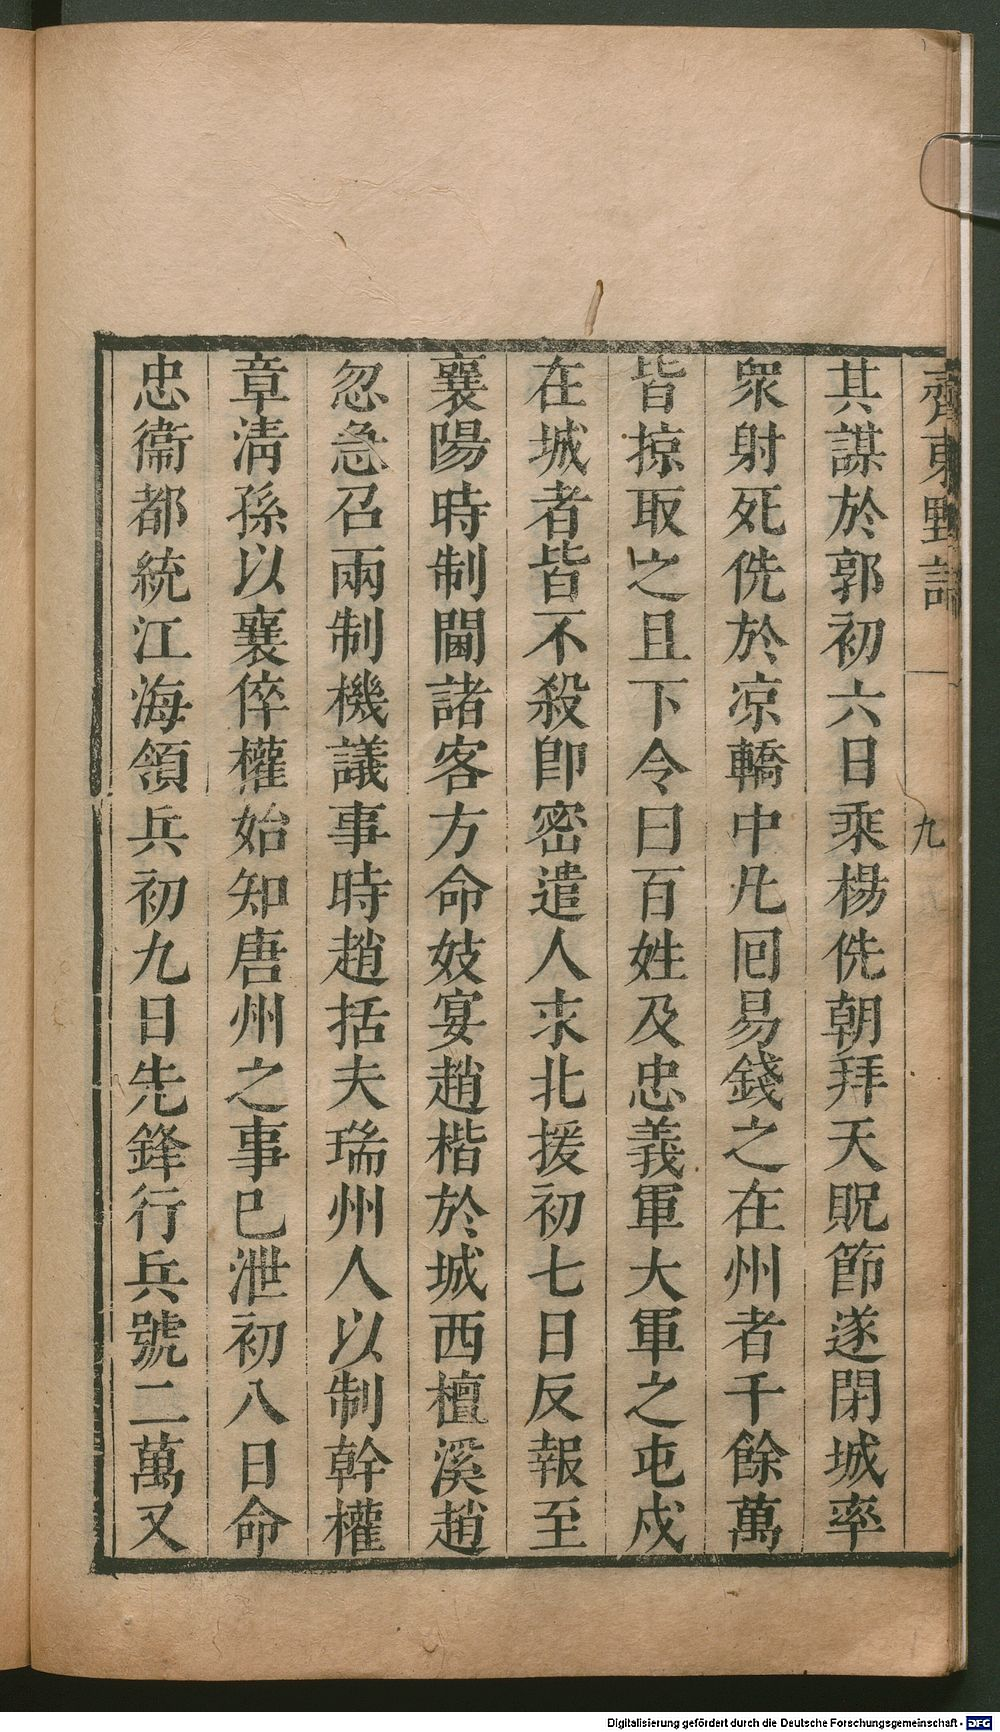 齊東野語
九
其謀於郭初六日乘楊侁朝拜天貺節遂閉城率
衆射死侁於凉轎中凡囘易錢之在州者千餘萬
皆掠取之且下令曰百姓及忠義軍大軍之屯戍
在城者皆不殺卽密遣人求北援初七日反報至
襄陽時制閫諸客方命妓宴趙楷於城西檀溪趙
忽急召兩制機議事時趙括夫瑞州人以制幹權
章淸孫以襄倅權始知唐州之事巳泄初八日命
忠衞都統江海領兵初九日先鋒行兵號二萬又
Digitalisierung gefördert durch die Deutsche Forschungsgemeinschaft - DFG